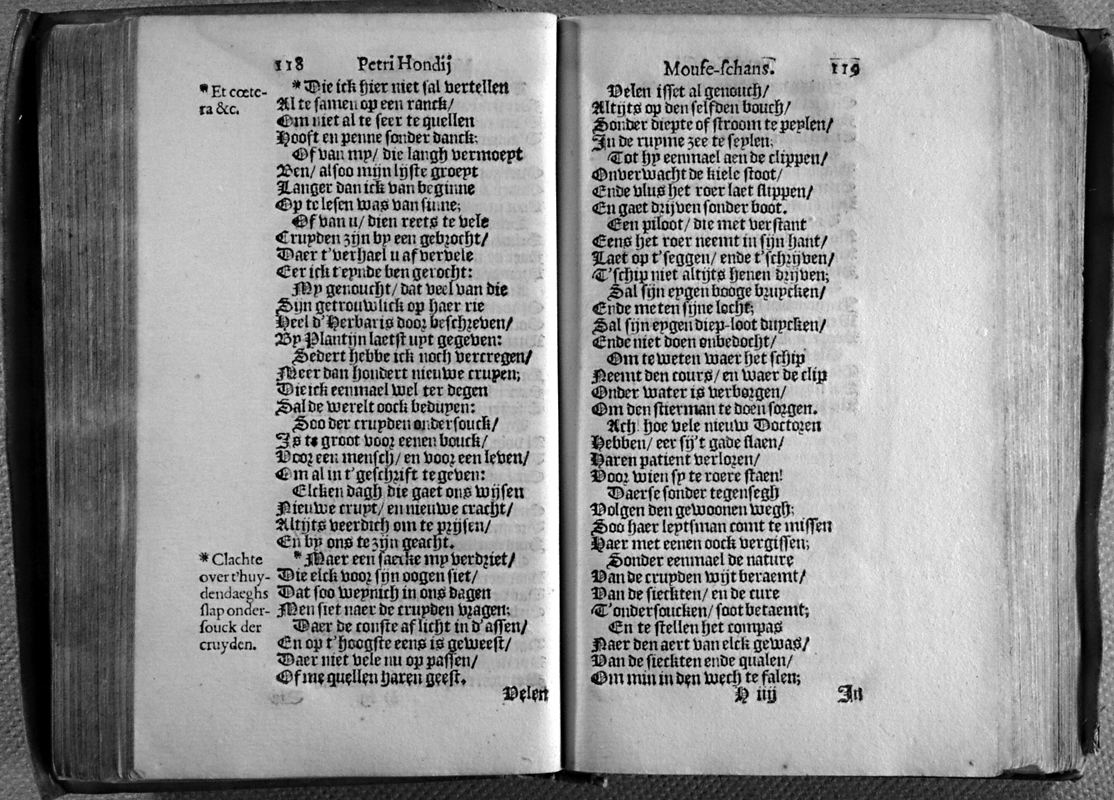 118 Petri Hondij
* Et cœte-
ra &c.
* Die ick hier niet sal vertellen
Al te samen op een ranck/
Om niet al te seer te quellen
Hooft en penne sonder danck:
Of van my/ die langh vermoeyt
Ben/ alsoo mijn lijste groeyt
Langer dan ick van beginne
Op te lesen was van sinne;
Of van u/ dien reets te vele
Cruyden zijn by een gebrocht/
Daer t'verhael u af vervele
Eer ick t'eynde ben gerocht:
My genoucht/ dat veel van die
Sijn getrouwlick op haer rie
Heel d'Herbaris door beschreven/
By Plantijn laetst uyt gegeven:
Sedert hebbe ick noch vercregen/
Meer dan hondert nieuwe cruyen;
Die ick eenmael wel ter degen
Sal de werelt oock beduyen:
Soo der cruyden ondersouck/
Is te groot voor eenen bouck/
Voor een mensch/ en voor een leven/
Om al in t'geschrift te geven:
Elcken dagh die gaet ons wijsen
Nieuwe cruyt/ en nieuwe cracht/
Altijts veerdich om te prijsen/
En by ons te zijn geacht.
* Clachte
over t'huy-
dendaeghs
slap onder-
souck der
cruyden.
* Maer een saecke my verdriet/
Die elck voor sijn oogen siet/
Dat soo weynich in ons dagen
Men siet naer de cruyden vragen:
Daer de conste af licht in d'assen/
En op t'hoogste eens is geweest/
Daer niet vele nu op passen/
Of me quellen haren geest.
Velen
Mouse-schans. 119
Velen isset al genouch/
Altijts op den selfden bouch/
Sonder diepte of stroom te peylen/
In de ruyme zee te seylen:
Tot hy eenmael aen de clippen/
Onverwacht de kiele stoot/
Ende vlus het roer laet slippen/
En gaet drijven sonder boot.
Een piloot/ die met verstant
Eens het roer neemt in sijn hant/
Laet op t'seggen/ ende t'schrijven/
T'schip niet altijts henen drijven;
Sal sijn eygen booge bruycken/
Ende meten sijne locht;
Sal sijn eygen diep-loot duycken/
Ende niet doen onbedocht/
Om te weten waer het schip
Neemt den cours/ en waer de clip
Onder water is verborgen/
Om den stierman te doen sorgen.
Ach! hoe vele nieuw Doctoren
Hebben/ eer sij't gade slaen/
Haren patient verloren/
Voor wien sy te roere staen!
Daerse sonder tegensegh
Volgen den gewoonen wegh;
Soo haer leytsman comt te missen
Haer met eenen oock vergissen;
Sonder eenmael de nature
Van de cruyden wijt beraemt/
Van de sieckten/ en de cure
T'ondersoucken/ soot betaemt;
En te stellen het compas
Naer den aert van elck gewas/
Van de sieckten ende qualen/
Om min in den wech te falen;
H iiij In